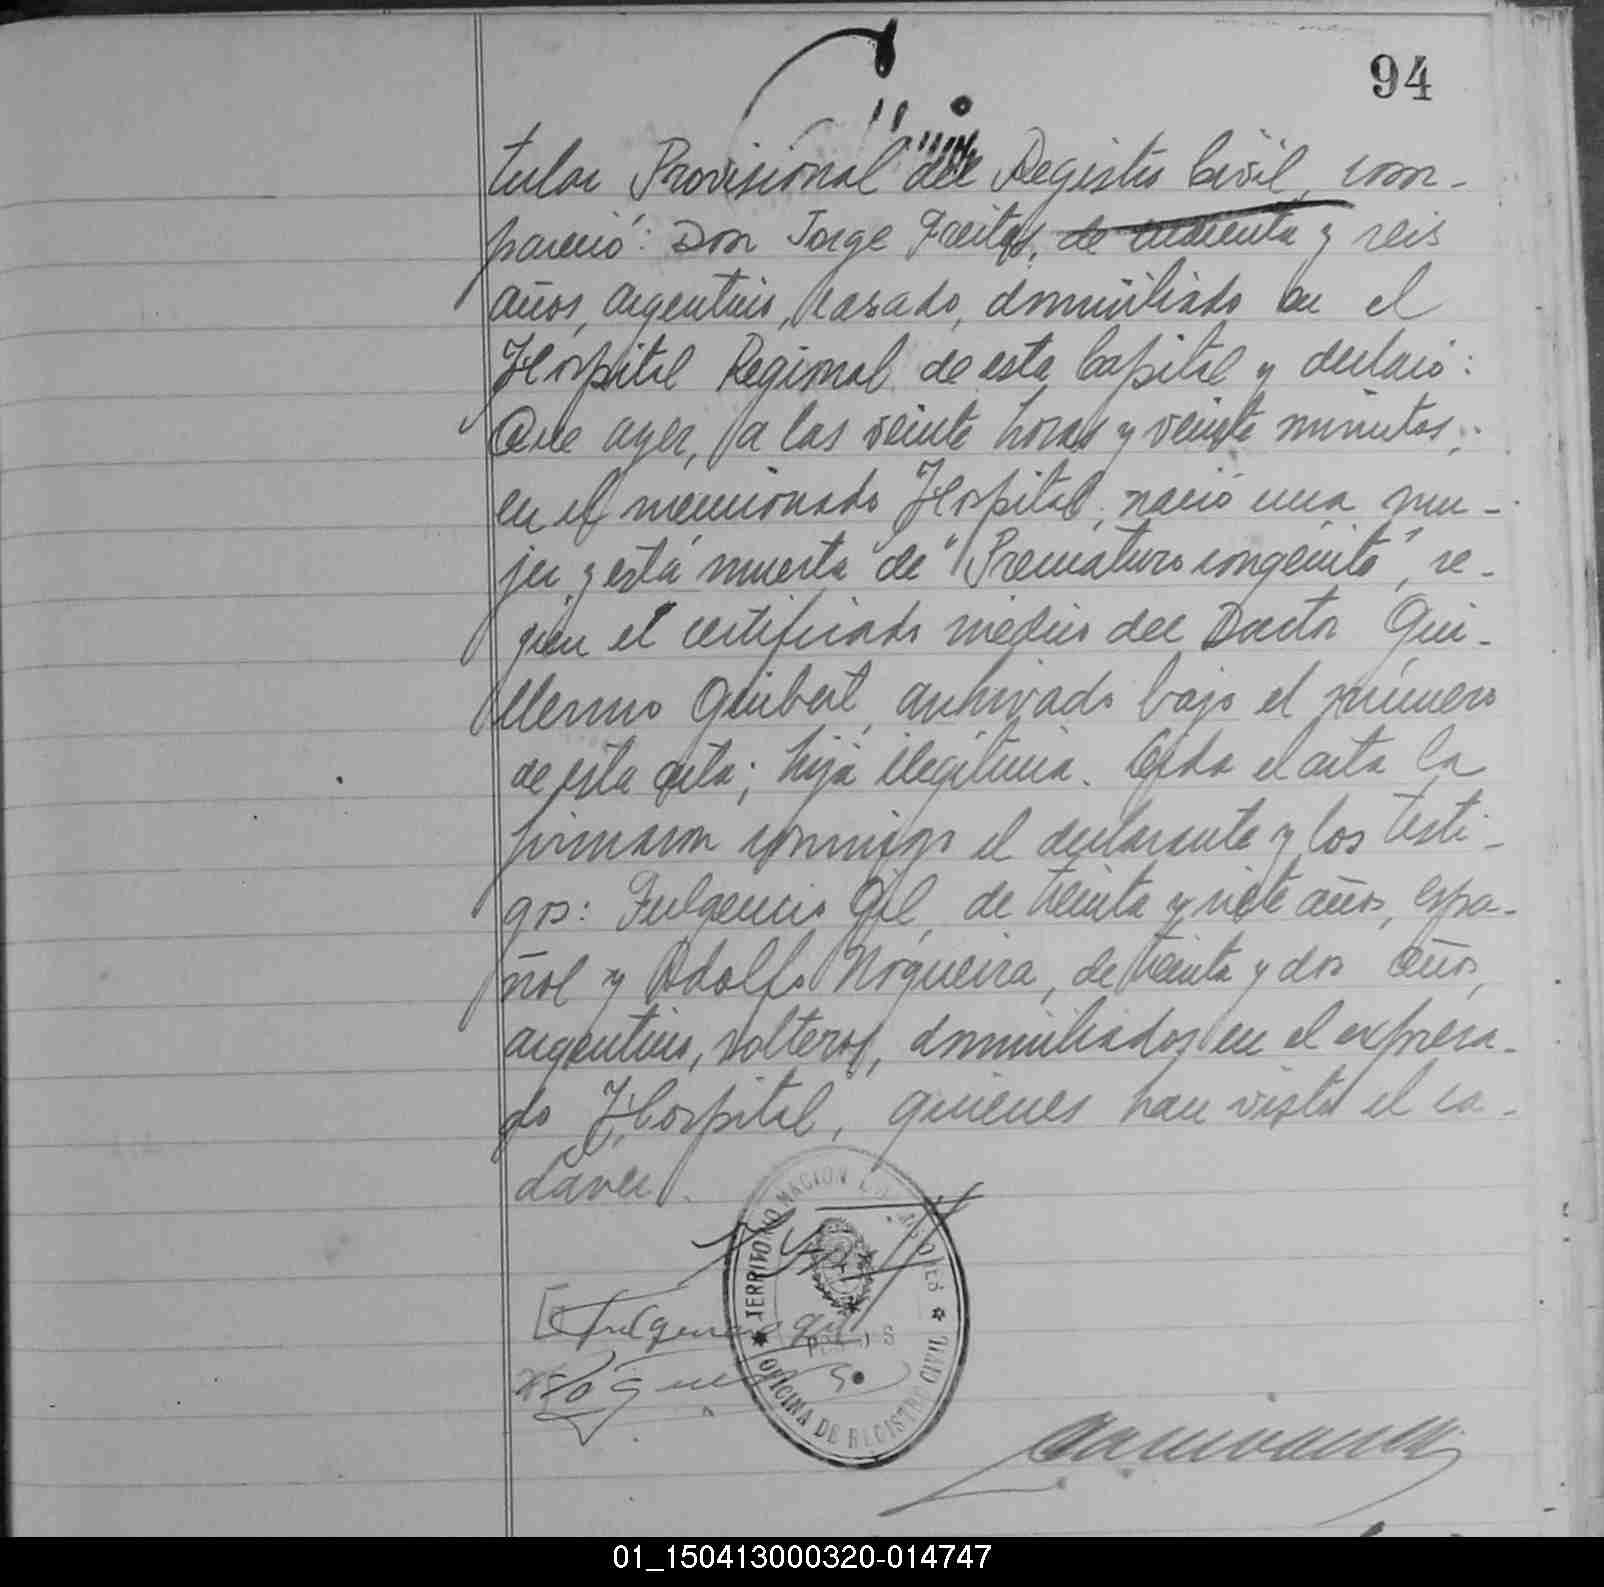 94
tular Provisional del Registro Civil, com-
pareció: Don Jorge Freitas, de cuarenta y seis
años, argentino, casado, domiciliado en el
Hospital Regional de esta Capital y declaró:
Que ayer, a las veinte horas y veinte minutos,
en el mencionado Hospital, nació una mu-
jer y está muerta de "Prematuro congénito", se-
gún el certificado médico del Doctor Gui-
llermo Guibert, archivado bajo el número
de esta acta; hija ilegítima. Leída el acta la
firmaron conmigo el declarante y los testi-
gos: Fulgencio Gil, de treinta y siete años, espa-
ñol y Adolfo Nogueira, de treinta y dos años,
argentino, solteros, domiciliados en el expresa-
do Hospital, quienes han visto el ca-
daver.
TERRITORIO NACION MISIONES
POSADAS
OFICINA DE REGISTRO CIVIL
Fulgencio Gil
01_150413000320-014747